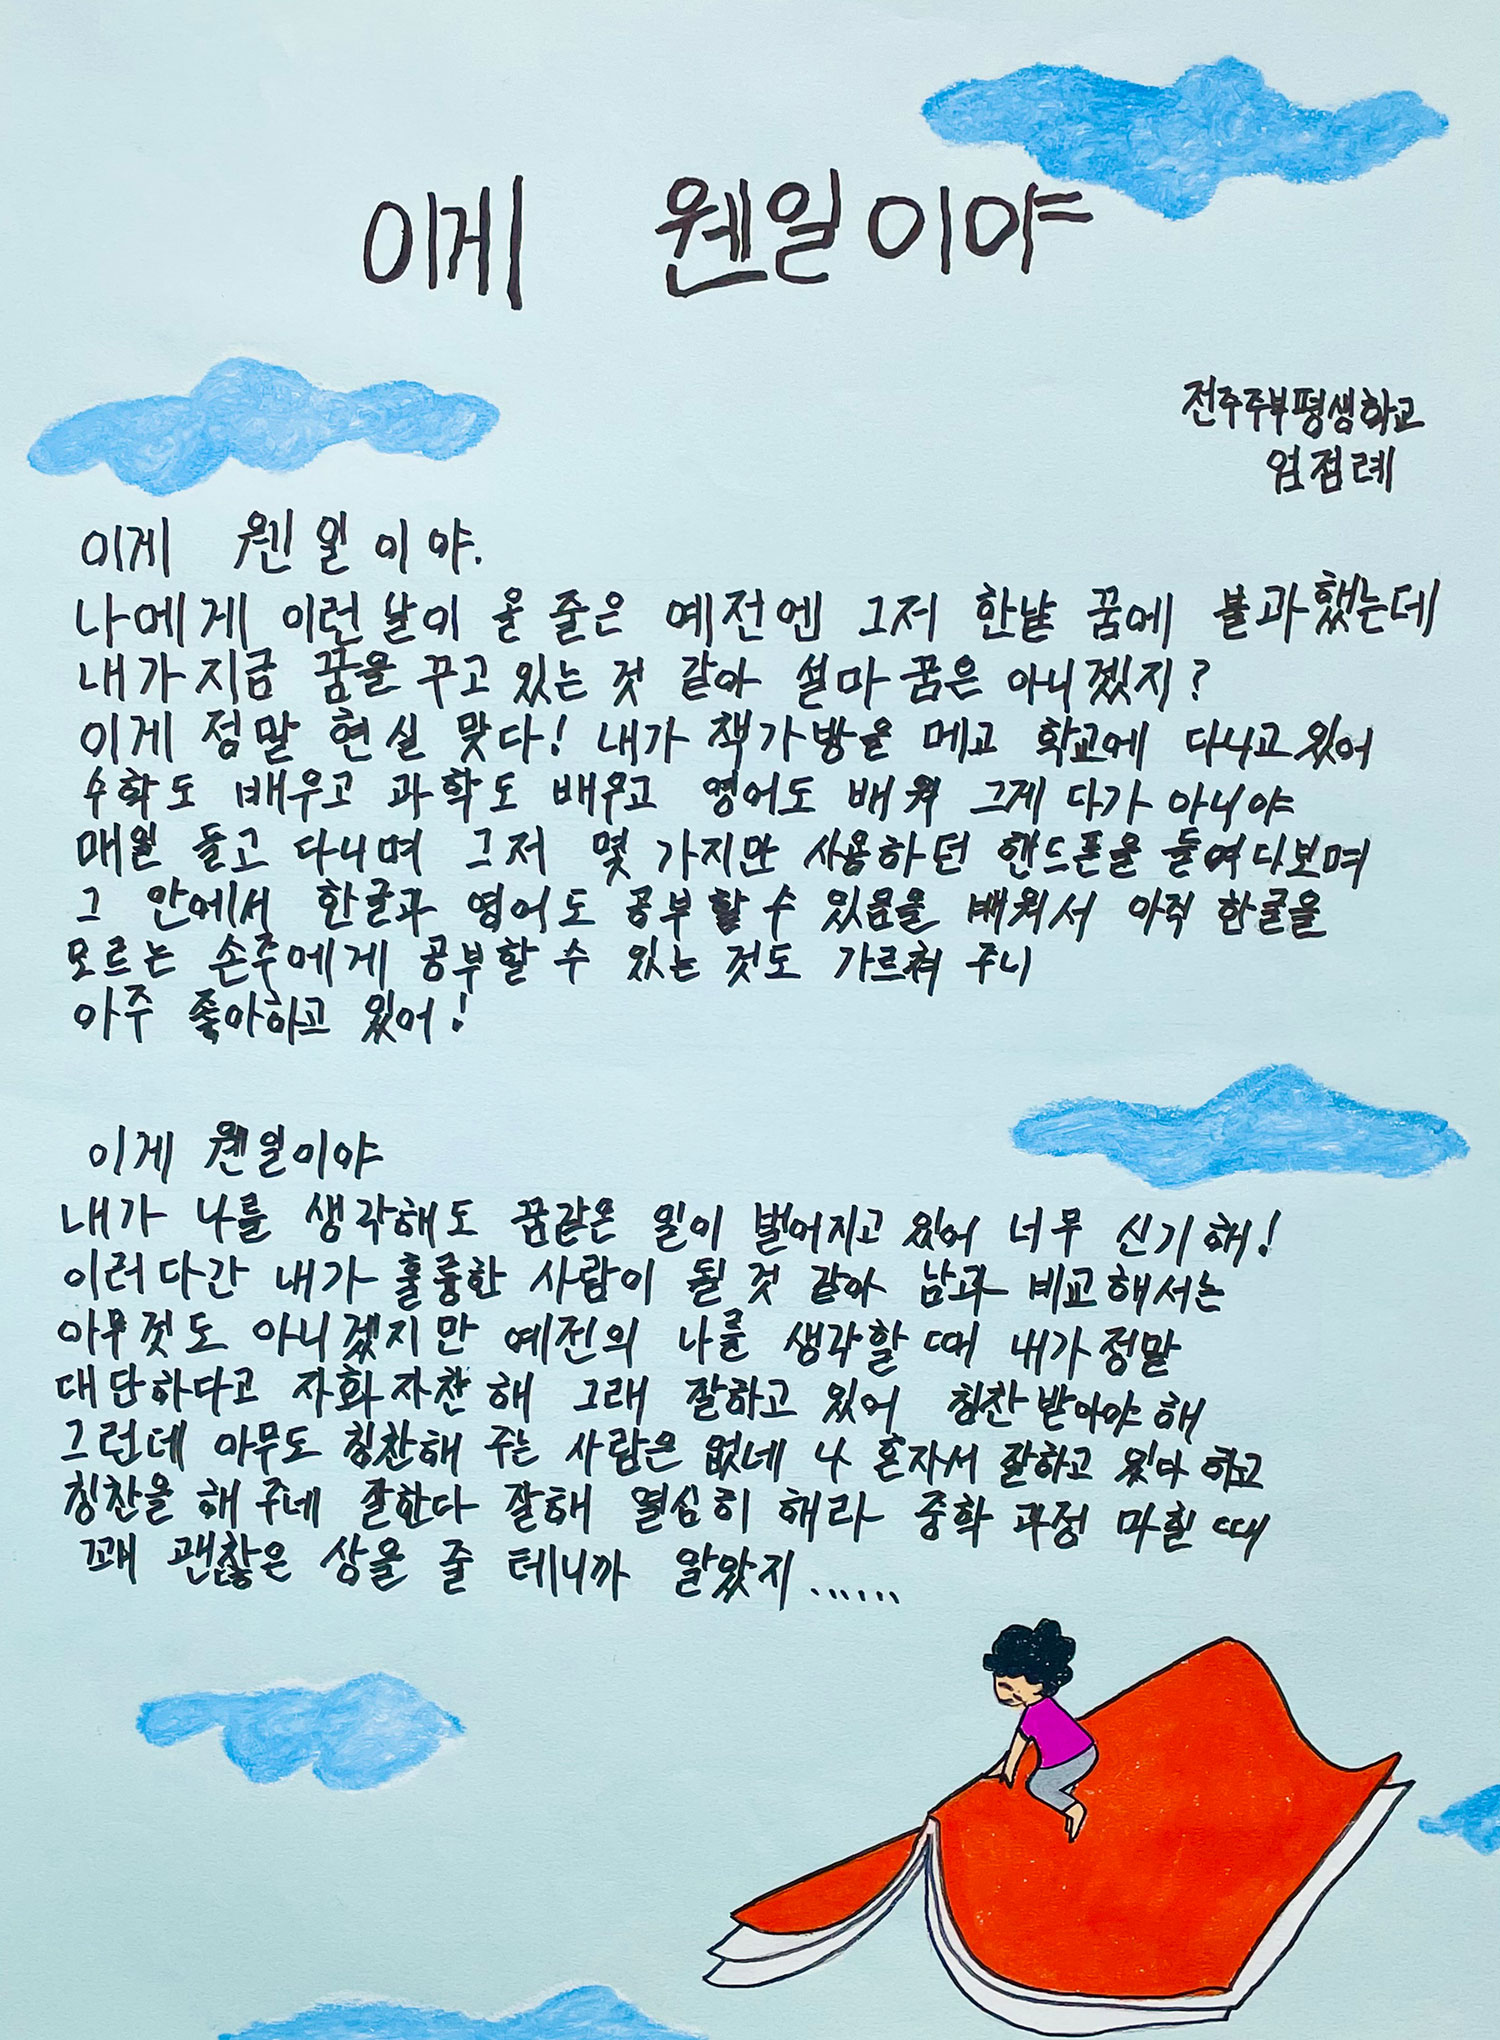 이게 웬일이야
전주주부평생학교
엄점례
이게 웬일이야.
나에게 이런날이 올 줄은 예전엔 그저 한낱 꿈에 불과했는데
내가지금 꿈을 꾸고 있는 것 같아 설마 꿈은 아니겠지?
이게 정말 현실 맞다! 내가 책가방을 메고 학교에 다니고 있어
수학도 배우고 과학도 배우고 영어도 배워 그게 다가 아니야
매일 들고 다니며 그저 몇 가지만 사용하던 핸드폰을 들여다보며
그 안에서 한글과 영어도 공부할 수 있음을 배워서 아직 한글을
모르는 손주에게 공부할 수 있는 것도 가르쳐 주니
아주 좋아하고 있어!
이게 웬일이야
내가 나를 생각해도 꿈같은 일이 벌어지고 있어 너무 신기해!
이러다간 내가 훌륭한 사람이 될 것 같아 남과 비교해서는
아무것도 아니겠지만 예전의 나를 생각할 때 내가정말
대단하다고 자화자찬 해 그래 잘하고 있어 칭찬받아야 해
그런데 아무도 칭찬해 주는 사람은 없네 나 혼자서 잘하고 있다 하고
칭찬을 해 주네 잘한다 잘해 열심히 해라 중학 과정 마칠 때
꽤 괜찮은 상을 줄 테니까 알았지......